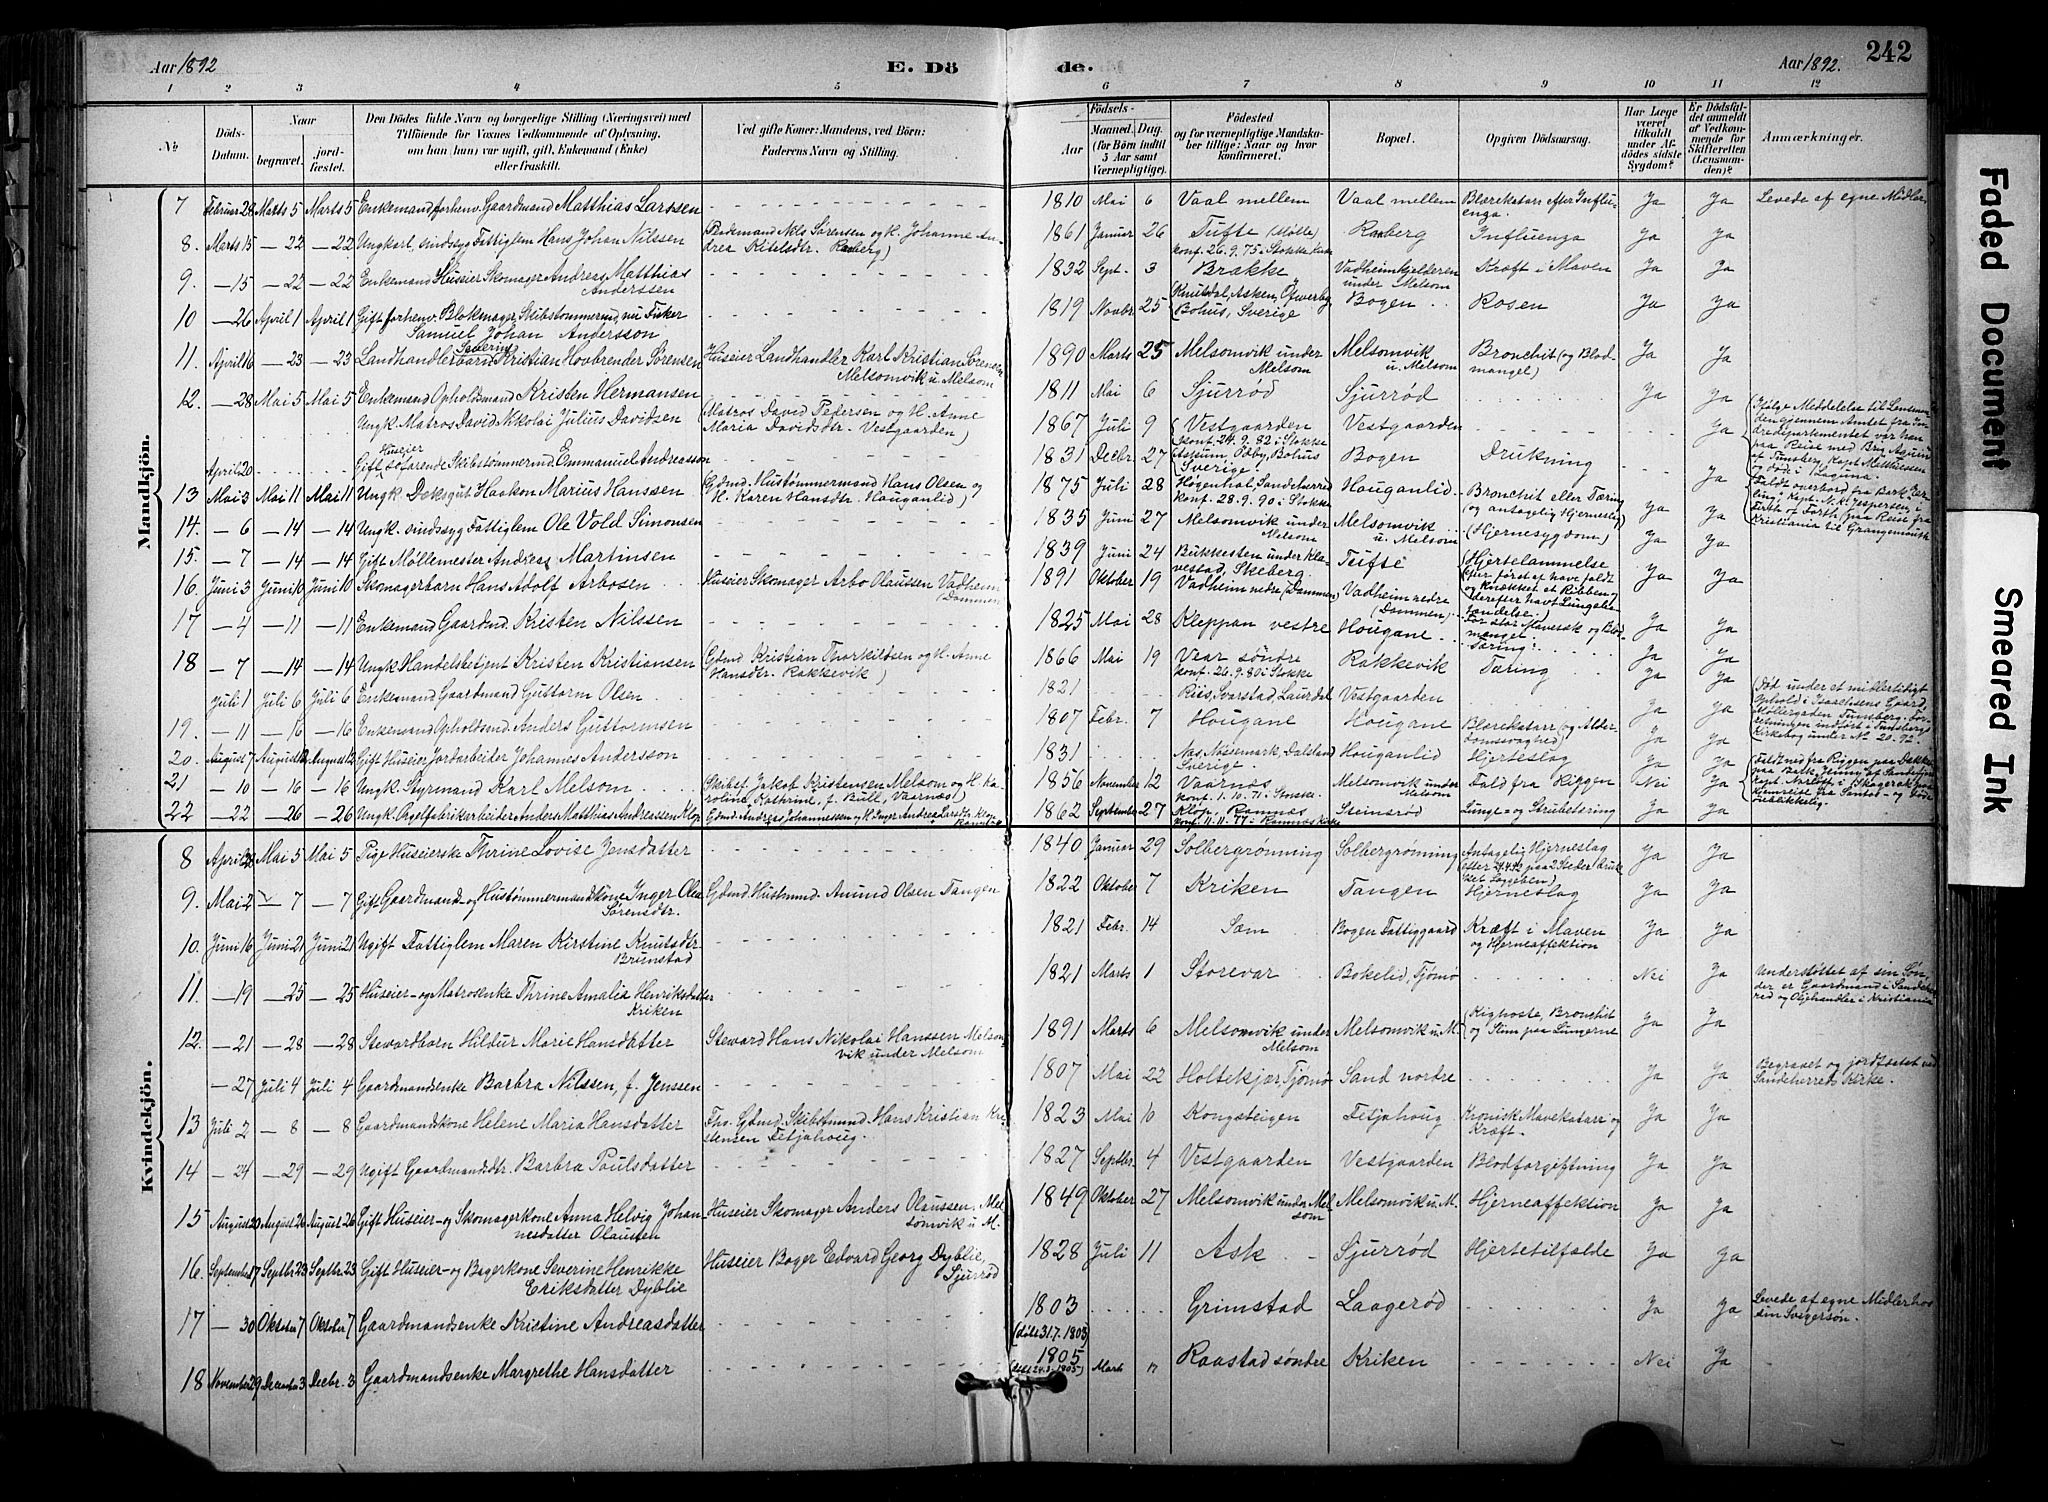 Aar 1892
E. Dö
de.
Aar 1892.
242
1 2 3 4 5 6 7 8 9 10 11 12
No
Döds-Datum.
Naar
begravet.
jord-fæstet.
Den Dödes fulde Navn og borgerlige Stilling (Næringsvei) med
Tilföiende for Voxnes Vedkommende af Oplysning,
om han (hun) var ugift, gift, Enkemand (Enke)
eller fraskilt.
Ved gifte Koner: Mandens, ved Börn:
Faderens Navn og Stilling.
Födsels-
Aar
Maaned. Dag.
(for Börn indtil
5 Aar samt
Værnepligtige).
Födested
og for værnepligtige Mandska-
ber tillige: Naar og hvor
konfirmeret.
Bopæl.
Opgiven Dödsaarsag.
Har Læge
været
tilkaldt
under Af-
dödes sidste
Sygdom?
Er Dödsfal-
det anmeldt
af Vedkom-
mende for
Skifteretten
(Lensman-
den)?
Anmærkninger.
Mandkjön.
7 Februar 28 Marts 5 Marts 5 Enkemand forhenv. Gaardmand Matthias Larssen 1810 Mai 6 Vaal mellem Vaal mellem Blærekatarr efter Influ-
enza Ja Ja Levede af egne Midler
8. Marts 15 — 22 — 22 Ungkarl, sindssyg Fattiglem Hans Johan Nilssen Nils Sørensen og H. Johanne An-
drea Kitelsdtr. 1861 Januar 26 Tufte (Mølle)
konf. 26.9.75 i Stokke Kirke Influenza Ja Ja
9. — 15 — 22 — 22 Enkemand Huseier Skomager Andreas Matthias
Anderssen 1832 Sept. 3 Brække Vadheimkjelderen
under Melsom Kræft i Maven Ja Ja
10 — 26 April 1 April 1 Gift forhenv. Blokmager, Skibstømmermd nu Fisker
Samuel Johan Andersson 1819 Novbr. 25 Bohus, Sverige Bogen Rosen Ja Ja
11. April 16 — 23 — 23 Landhandlerbarn Kristian Hovbrender Sørensen Huseier Landhandler Karl Kristian Sørensen
Melsomvik u. Melsom 1890 Marts 25 Melsomvik under
Melsom Melsomvik
u. Melsom Bronchit (og Blod-
mangel) Ja Ja
12. — 28 Mai 5 Mai 5 Enkemand Opholdsmand Kristen Hermansen 1811 Mai 6 Sjurrød Sjurrød Ja Ja
Ungk. Matros David Nikolai Julius Davidsen (Matros David Pedersen og H. Anne
Maria Davidsdtr. Vestgaarden) 1867 Juli 9 Vestgaarden
konf. 24.9.82 i Stokke Vestgaarden Ja
April 20 Huseier
Gift, søfarende Skibstømmermd. Emmanuel Andreasson 1831 Decbr. 27 Bohus
Sverige Bogen Drukning Ja
13 Mai 3 Mai 11 Mai 11 Ungk. Deksgut Haakon Marius Hanssen Gdmd. Hustømmermand Hans Olsen og
H. Karen Hansdtr. Houganlid) 1875 Juli 28 Høgenhal, Sandeherred
konf. 28.9.90 i Stokke Houganlid Bronchit eller Tæring
(og antagelig Hjerneslag) Ja Ja
14. — 6 — 14 — 14 Ungk. sindssyg Fattiglem Ole Vold Simonsen 1835 Juni 27 Melsomvik under
Melsom Melsomvik
u. Melsom (Hjernesygdom) Ja Ja
15. — 7 — 14 — 14 Gift Møllemester Andreas Martinsen 1839 Juni 24 Bukkesten under Kla-
vestad, Skeberg Tufte (Hjertelammelse Ja Ja
16. Juni 3 Juni 10 Juni 10 Skomagerbarn Hans Adolf Arbosen Huseier Skomager Arbo Olaussen Vadheim
(Dammen) 1891 Oktober 19 Vadheim nedre (Dammen) Vadheim nedre
(Dammen) Ja Ja
17 — 4 — 11 — 11 Enkemand Gaardmd. Kristen Nilssen 1825 Mai 28 Kleppan vestre Hougane For stor Mavesæk og Blod-
mangel Ja Ja
18 — 7 — 14 — 14 Ungk. Handelsbetjent Kristen Kristiansen Gdmd Kristian Thorkildsen og H. Anne
Hansdtr. Rakkevik) 1866 Mai 19 Vear søndre
konf. 26.9.80 i Stokke Rakkevik Tæring Ja Ja
Juli 1 Juli 6 Juli 6 Enkemand Gaardmand Guttorm Olsen 1821 Svarstad, Laurdal Vestgaarden Ja Ja (Død under et midlertidigt
Ophold i Isachsens Gaard
Møllergaden Tunsberg. For-
retningen indført i Tunsbergs
Kirkebog under No 20. 92.
19. — 11 — 16 — 16 Enkemand Opholdsmd Anders Guttormsen 1807 Febr. 7 Hougane Hougane Blærekatarr (og Alder-
domssvaghed) Ja Ja
20. August 7 August 12 August 12 Gift Huseier Jordarbeider Johannes Andersson 1831 Nøssemark, Dalsland
Sverige Houganlid Hjerteslag Ja Ja
21. — 10 — 16 — 16 Ungk. Styrmand Karl Melsom Skibsf. Jakob Kristensen Melsom og H. Ka-
roline Kathrine, f. Bull, Vaarnæs) 1856 November 12 Vaarnæs
konf. 1.10.71 i Stokke Melsomvik under
Melsom Fald fra Riggen Nei Ja
22 — 22 — 26 — 26 Ungk. Orgelfabrikarbeider Anders Matthias Andreassen Klop Gdmd. Andreas Johannessen 1862 September 27 Klop, Ramnæs
konf. 11.11.77 i Ramnæs Kirke Steinsrød Lunge- og Strubetæring Ja Ja
Kvindekjön.
8 April 28 Mai 5 Mai 5 Pige Huseierske Thrine Lovise Jensdatter 1840 Januar 29 Solbergrønning Solbergrønning Antagelig Hjerneslag Ja Ja
9. Mai 2 — 7 — 7 Gift Gaardmand- og Hustømmermandskone Inger Olea
Sørensdtr. Gdmd. Hustmmd. Amund Olsen Tangen 1822 Oktober 7 Kriken Tangen Hjerneslag Ja Ja
10. Juni 16 Juni 21 Juni 21 Ugift Fattiglem Maren Kirstine Knutsdtr
Brunstad 1821 Febr. 14 Sæm Bogen Fattiggaard Kræft i Maven
og Hjerneaffektion Ja Ja
11. — 19 — 25 — 25 Huseier- og Matrosenke Thrine Amalia Henriksdatter
Kriken 1821 Marts 1 Storevar Bokelid, Tjømø Nei Ja Understøttet af sin Søn,
der er Gaardmand i Sandeher-
red og Oljehandler i Kristiania
12. — 21 — 28 — 28 Stewardbarn Hildur Marie Hansdatter Steward Hans Nikolai Hanssen Melsom-
vik under Melsom 1891 Marts 6 Melsomvik under
Melsom Melsomvik u. M. (Kighoste, Bronchit
og Slim paa Lungerne Ja Ja
— 27 Juli 4 Juli 4 Gaardmandsenke Barbra Nilssen, f. Jenssen 1807 Mai 22 Holtekjær, Tjømø Sand nordre Ja Ja Begravet og jordfæstet ved
Sandeherreds Kirke.
13 Juli 2 — 8 — 8 Gaardmandskone Helene Maria Hansdatter Fhv. Gdmd. Skibstmmd. Hans Kristian Kri-
stensen Fetjahoug. 1823 Mai 10 Kongsteigen Fetjahoug Kronisk Mavekatarr og
Kræft. Ja Ja
14 — 24 — 29 — 29 Ugift Gaardmandsdtr. Barbra Paulsdatter 1827 Septbr. 4 Vestgaarden Vestgaarden Blodforgiftning Ja Ja
15 August 20 August 26 August 26 Gift Huseier- og Skomagerkone Anna Helvig Johan-
nesdatter Olaussen Huseier Skomager Anders Olaussen, Mel-
somvik u. M. 1849 Oktober 27 Melsomvik under Mel-
som Melsomvik u. M. Hjerneaffektion Ja Ja
16. September 17 Septbr. 23 Septbr. 23 Gift Huseier- og Bagerkone Severine Henrikke
Eriksdatter Dyblie Huseier Bager Edvard Georg Dyblie,
Sjurrød 1828 Juli 11 Ask Sjurrød Hjertetilfælde Ja Ja
17 — 30 Oktober 7 Oktober 7 Gaardmandsenke Kristine Andreasdatter 1803
(døbt 31.7.1803) Grimstad Laagerød Ja Ja Levede af egne Midler hos
sin Svigersøn.
18 November 29 December 3 Decbr. 3 Gaardmandsenke Margrethe Hansdatter 1805
(døbt 24.3.1805) Marts 17 Raastad søndre Kriken Nei Ja
Faded Document
Smeared Ink